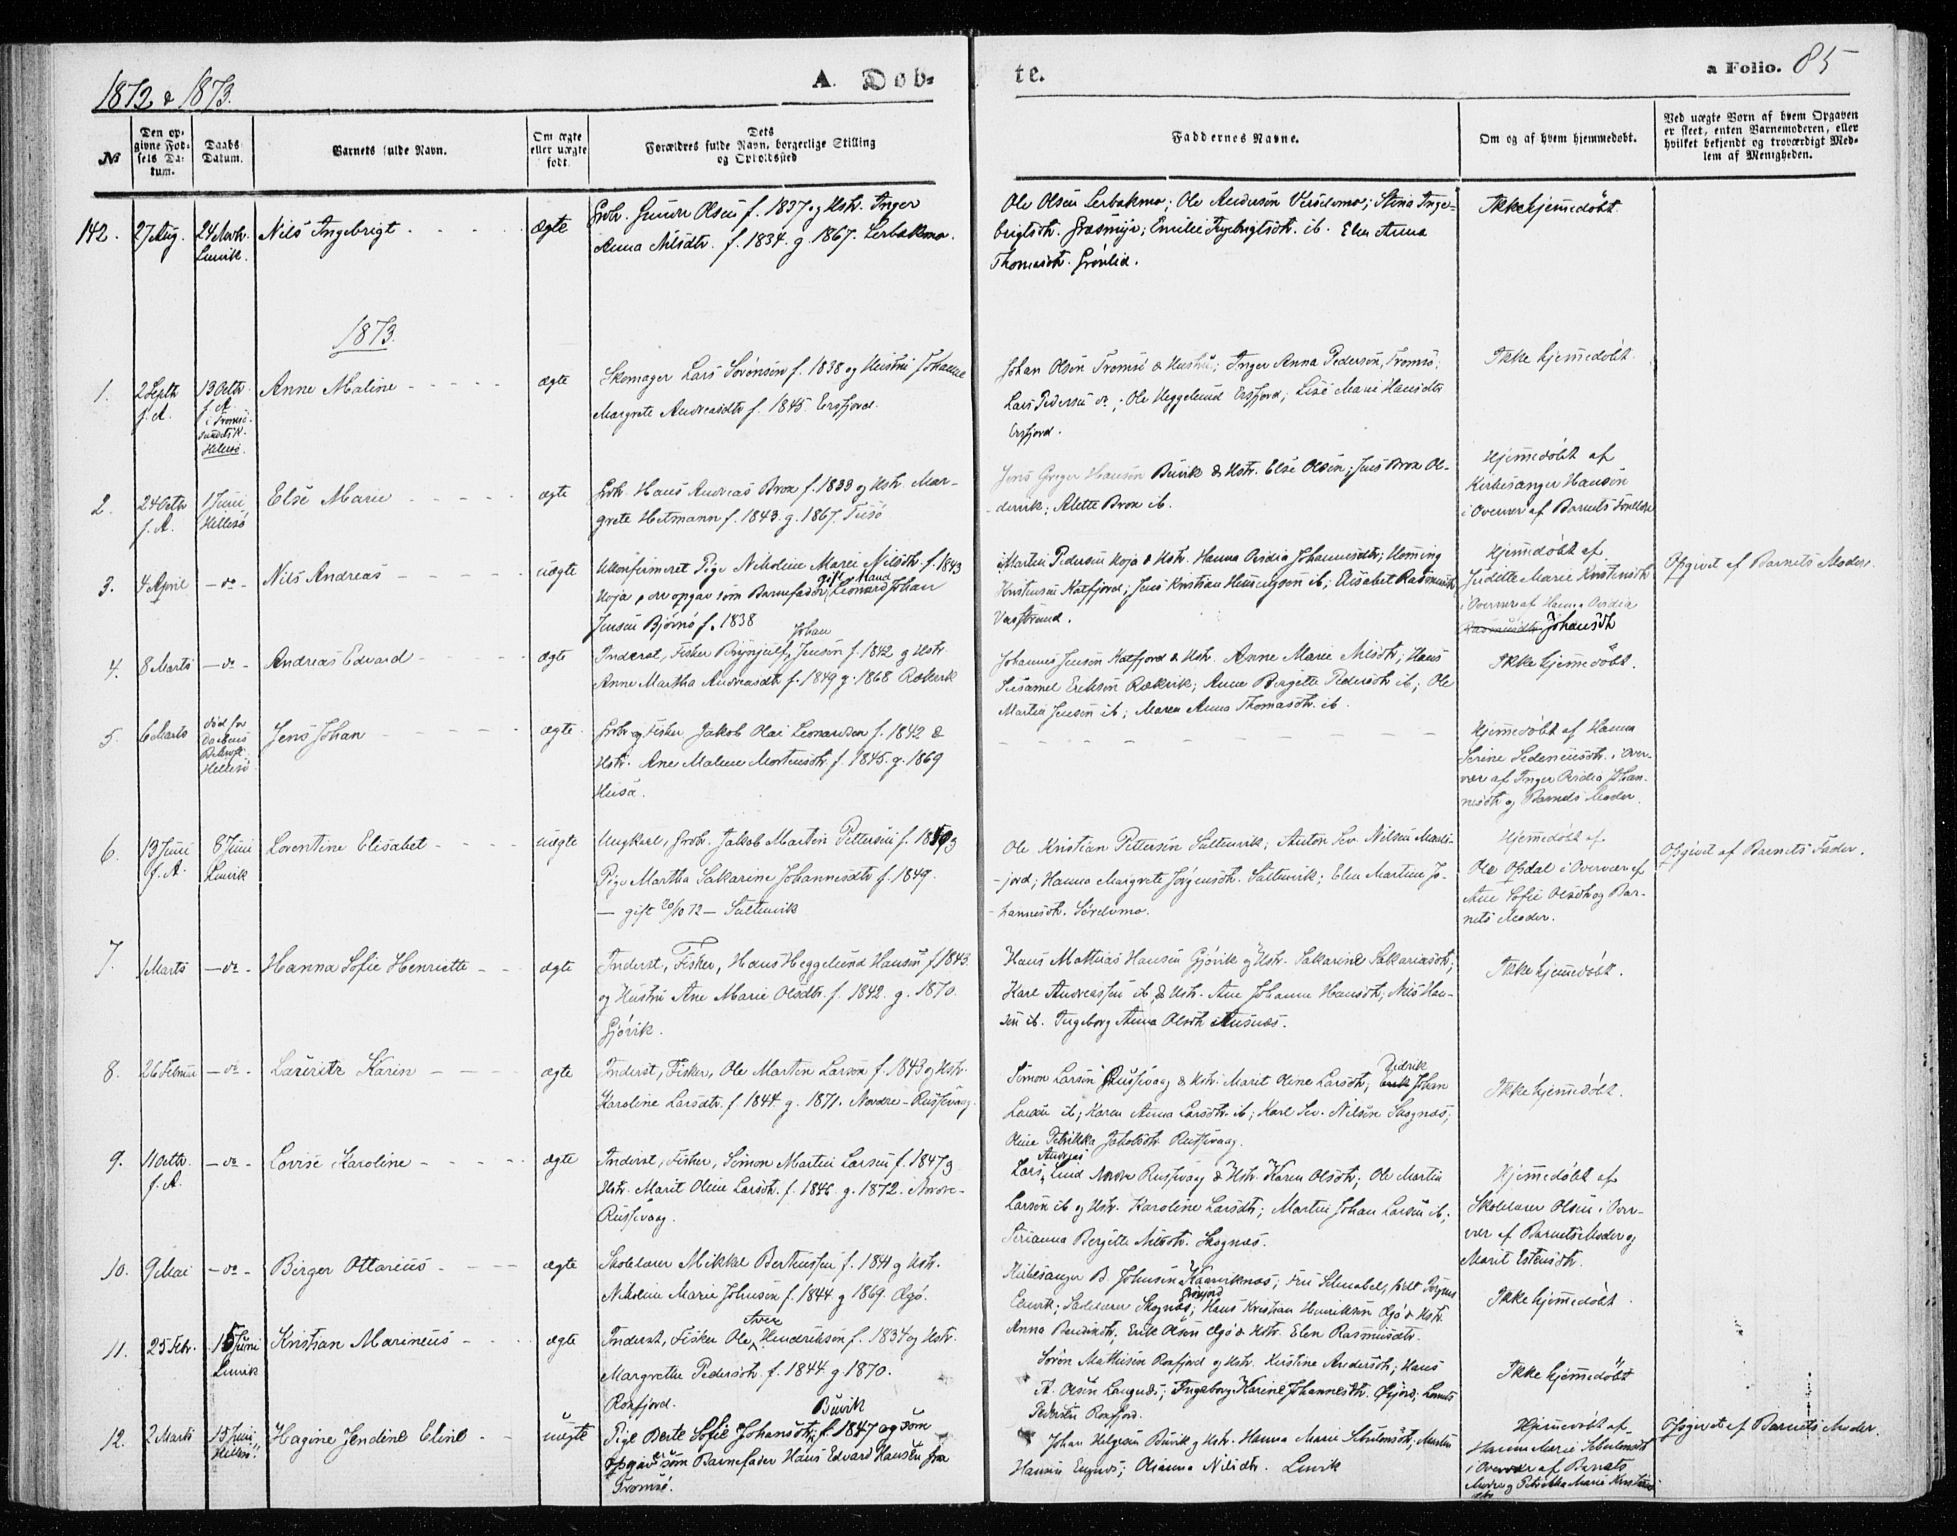 1872 & 1873.
A. Døb-
te.
a Folio. 85
№
Den op-
givne Fød-
sels Da-
tum.
Daabs
Datum.
Barnets fulde Navn.
Om ægte
eller uægte
født.
Dets
Forældres fulde Navn, borgerlige Stilling
og Opholdssted
Faddernes Navne.
Om og af hvem hjemmedøbt.
Ved uægte Børn af hvem Opgaven
er skeet, enten Barnemoderen, eller
hvilket bekjendt og troværdigt Med-
lem af Menigheden.
142.
27 Aug.
24 Novbr.
Lenvik.
Nils Ingebrigt
ægte
Grbr. Gunnar Olsen f. 1837 og Hstr. Inger
Anna Nilsdtr. f. 1834. g. 1867. Lerbakmo.
Ole Olsen Lerbakmo; Ole Andersen; Stina Inge-
brigtsdtr. Græsmyr; Emilie Ingebrigtsdtr. ib. Elen Anna
Thomasdtr. Grønlid.
Ikke hjemmedøbt.
1873.
1.
2 Septb
f. A.
13 Octbr
f. A.
i Tromsø-
sundets K.
Hillesø.
Anne Maline
ægte
Skomager Lars Sørensen f. 1838 og Hustru Johanna
Margrete Andreasdtr f. 1845 Ersfjord.
Johan Olsen Tromsø & Hustru; Inger Anna Pedersen, Tromsø;
Lars Pedersen do; Ole Heggelund Ersfjord; Lise Marie Hansdtr
Ersfjord.
Ikke hjemmedøbt.
2.
24 Octbr
f. A.
1 Juni
Hillesø
Else Marie
ægte
Grbr. Hans Andreas Brox f. 1839 og Hstr. Mar-
grete Hetmann f. 1843. g. 1867. Tusø
Jens Greger Hansen Buvik & Hstr. Else Olsen; Jens Brox Ol-
dervik; Alette Brox ib.
Hjemmedøbt af
Kirkesanger Hansen
i Overvær af Barnets Forældre
3.
4 April
- do -
Nils Andreas
uægte
Ukonfirmeret Pige Nikoline Marie Nilsdtr. f. 1843
Hoja, der opgav som Barnefader gift Mand Leonard Johan
Jensen Bjørnø f. 1838
Martin Pedersen Hoja & Hstr. Hanna Ovidia Johannesdtr; Henning
Kristensen Katfjord; Jens Kristian Henningsen ib; Elisabet Rasmusdtr
Vasstrand.
Hjemmedøbt af
Juditte Marie Kristensdtr
i Overvær af Hanna Ovidia
Rasmusdtr Johansdtr
Opgivet af Barnets Moder.
4.
8 Marts
- do -
Andreas Edvard
ægte
Inderst, Fisker Brynjulf Johan Jensen f. 1842 og Hstr.
Anne Martha Andreasdtr f. 1849 g. 1868 Rækvik
Johannes Jensen Katfjord & Hstr. Anne Marie Nilsdtr; Hans
Eriksen Rækvik; Anne Birgitte Pedersdtr ib; Ole
Martin Jensen ib; Maren Anna Thomasdtr. ib.
Ikke hjemmedøbt.
5.
6 Marts
død før
Daabens
Bekræft.
Hillesø
Jens Johan
ægte
Grbr og Fisker Jakob Olai Leonardsen f. 1842 &
Hstr. Ane Malene Mortensdtr f. 1845. g. 1869
Husø.
Hjemmedøbt af Hanna
Serine Sedeniusdtr. i Over-
vær af Inger Ovidia Johan-
nesdtr og Barnets Moder.
6.
13 Juni
f. A.
8 Juni
Lenvik
Lorentine Elisabet
uægte
Ungkarl, Grbr. Jakob Martin Pettersen f. 1849 &
Pige Martha Sakarine Johannesdtr f. 1849.
— gift 20/10 72 — Sultenvik
Ole Kristian Pettersen Sultenvik; Anton Sev. Nilsen Mals-
fjord; Hanna Margrete Jørgensdtr. Sultenvik; Elen Martine Jo-
hannesdtr. Sørdsmo.
Hjemmedøbt af
Ole Opdal i Overvær af
Ane Sofie Olsdtr og Bar-
nets Moder.
Opgivet af Barnets Fader.
7.
1 Marts
- do -
Hanna Sofie Henriette
ægte
Inderst, Fisker, Hans Heggelund Hansen f. 1843.
og Hustru Ane Marie Olsdtr. f. 1842. g. 1870.
Gjøvik.
Hans Mathias Hansen Gjøvik og Hstr. Sakarine Sakariasdtr;
Karl Andreassen ib & Hstr. Ane Johanna Hansdtr; Nils Han-
sen ib. Ingeborg Anna Olsdtr Ansnæs.
Ikke hjemmedøbt.
8.
26 Februar
- do -
Lauritz Karin
ægte
Inderst, Fisker, Ole Martin Larsen f. 1843 og Hstr.
Karoline Larsdtr. f. 1844 g. 1871. Nordre-Russevaag.
Simon Larsen Russevaag & Hstr. Marit Oline Larsdtr; Didrik Erik Johan
Larsen ib; Karen Anna Larsdtr. ib; Karl Sev. Nilsen Skognæs;
Oline Petrikka Jakobsdtr Russevaag.
Ikke hjemmedøbt.
9.
11 Octbr.
f. A.
- do -
Lovise Karoline
ægte
Inderst, Fisker, Simon Martin Larsen f. 1847 og
Hstr. Marit Oline Larsdtr. f. 1846 g. 1872. Nordre-
Russevaag.
Lars Andreas Lind Nordre Russevaag & Hstr. Karen Olsdtr; Ole Martin
Larsen ib og Hstr. Karoline Larsdtr; Martin Johan Larsen ib;
Serianna Bergitte Nilsdtr. Skognæs.
Hjemmedøbt af
Skolelærer Olsen i Over-
vær af Barnets Moder og
Marit Estensdtr.
10.
9 Mai
- do -
Birger Ottarius
ægte
Skolelærer Mikkal Bertiussen f. 1841 og Hstr.
Nikoline Marie Johnsen f. 1844 g 1869. Olgø.
Kirkesanger B. Johnsen Kaarviknæs; Fru Schnabel, født
Lenvik; Skolelærer Skognæs; Hans Kristian Henriksen Olgø & Hstr.
Anna Bendixdtr. Erik Olsen Olgø & Hstr. Elen Rasmusdtr.
Ikke hjemmedøbt.
11.
25 Febr.
15 Juni
Lenvik
Kristian Marineus
ægte
Inderst, Fisker Ole Iver Hendriksen f. 1834 og Hstr.
Margrethe Pedersdtr. f. 1844 g 1870.
Roxfjord.
Søren Mathisen Roxfjord og Hstr. Kirstine Andersdtr; Hans
A. Olsen Langnæs; Ingeborg Karine Johannesdtr. Øfjord;
Pedersen Roxfjord.
Ikke hjemmedøbt
12.
2 Marts
15 Juni
Hillesø
Hagine Jendine Eline
uægte
Pige Berte Sofie Johansdtr. Buvik f. 1847 og som
opgav som Barnefader Hans Edvard Hansen fra
Tromsø.
Johan Helgesen Buvik og Hstr. Hanna Marie Schulemsdtr; Morten
Hansen Engnæs; Olianna Nilsdtr. Lenvik
Hjemmedøbt af
Hanna Marie Schulemsdtr
i Overvær af Barnets
Moder og Petrikka Marie Kristians
dtr
Opgivet af Barnets Moder.